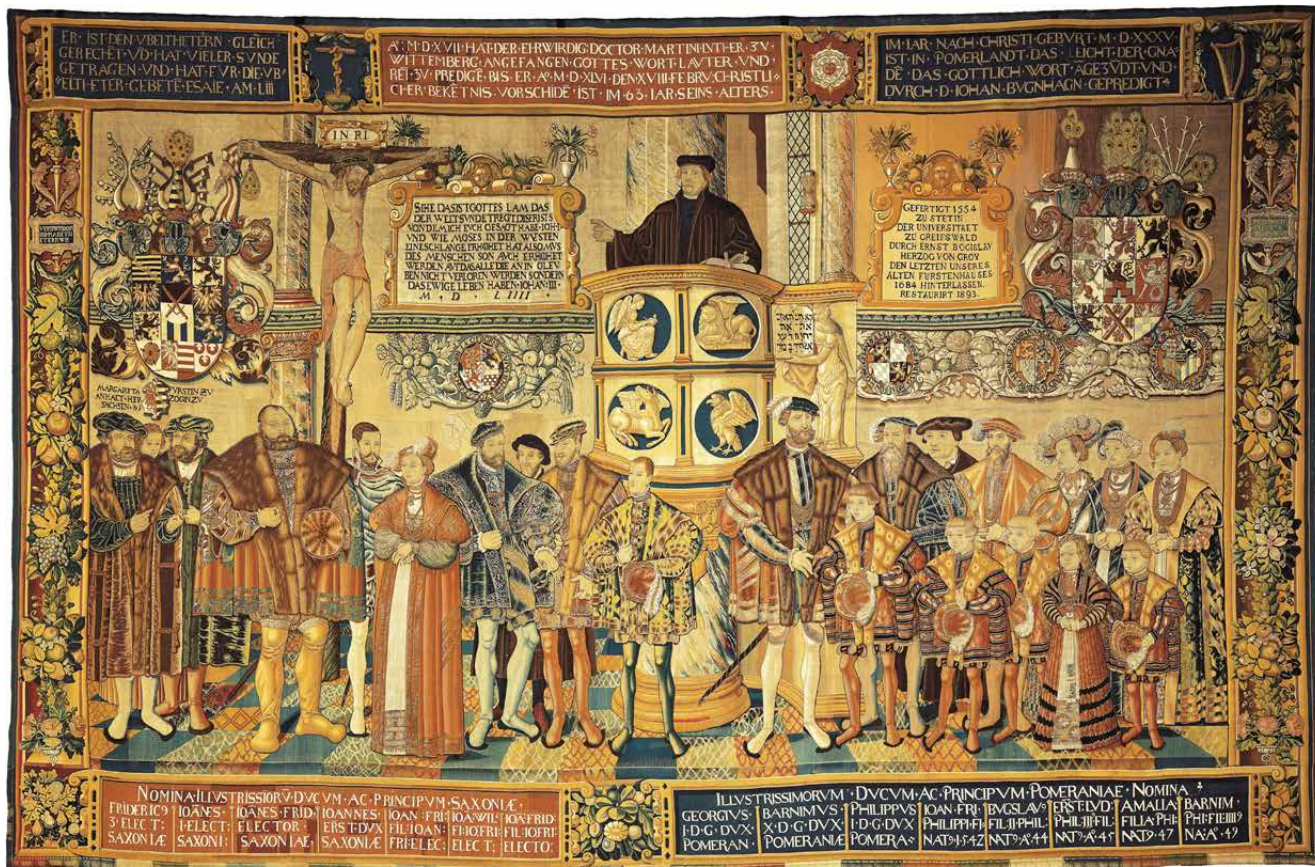 ER · IST · DEN · VBELTHETERN · GLEICH
GERECHET · VD · HAT · VIELER · SVNDE
GETRAGEN · VND · HAT · FVR · DIE · VB
ELTHETER · GEBETE · ESAIE · AM · LIII
A · M · D · XVII · HAT · DER · EHRWIRDIG · DOCTOR · MARTIN · LVTHER · ZV ·
WITTEMBERG · ANGEFANGEN · GOTTES · WORT · LAVTER · VND ·
REI · ZV · PREDIGĒ · BIS · ER · Aº · M · D · XLVI · DEN · XVIII · FEBRV · CHRISTLI
CHER · BEKĒTNIS · VORSCHIDĒ · IST · IM · 63 · IAR · SEINS · ALTERS ·
IM · IAR · NACH · CHRISTI · GEBVRT · M · D · XXXV
IST · IN · POMERLANDT · DAS · LEICHT · DER · GNA
DĒ · DAS · GOTTLICH · WORT · ĀGEZVDT · VND
DVRCH · D · IOHAN · BVGNHAGN · GEPREDIGT
INRI
SIHE DAS IST GOTTES LAM DAS
DER WELT SVNDE TREGT DISER IST S
VON DEM ICH EVCH GESAGT HABE · IOH · I
VND WIE MOSES IN DER WVSTEN
EINE SCHLANGE ERHOHET HAT ALSO MVS
DES MENSCHEN SON AVCH ERHOHET
WERDEN AVF DAS ALLE DIE AN IN GLEV
BEN NICHT VERLORN WERDEN SONDERN
DAS EWIGE LEBEN HABEN · IOHAN · III ·
M · D · LIIII
GEFERTIGT 1554
ZU STETIN
DER UNIVERSITAET
ZU GREIFSWALD
DURCH ERNST BOGISLAV
HERZOG VON CROY
DEN LETZTEN UNSERES
ALTEN FURSTENHAUSES
1684 HINTERLASSEN.
RESTAURIRT 1893.
MARGARETA FVRSTIN ZV
ANHALT · HER ZOGIN ZV
SACHSEN
NOMINA · ILLVSTRISSIORV̄ · DVCVM · AC · PRINCIPVM · SAXONIÆ ·
FRIDERIC9 IOĀNES · IOĀNES · FRID · IOANNES IOAN : FRI : IOĀ · WIL · IOĀ : FRID
3 · ELECT : I · ELECT : ELECTOR · ERST · DVX FIL : IOAN : FI : IO · FRI : FIL · IO FRI
SAXONIÆ SAXONI : SAXONIAE SAXONIÆ FRI · ELEC : ELECT : ELECTO :
ILLVSTRISSIMORVM · DVCVM · AC · PRINCIPVM · POMERANIAE · NOMINA
GEORGIVS · BARNIMVS PHILIPPVS IOAN · FRI · BVGSLAV9 ERST · LVD : AMALIA BARNIM ·
I · D · G · DVX X · D · G · DVX I · D · G · DVX PHILIPP · FI · FIL · II · PHIL : PHIL · III · FIL : FILIA · PHI : PHI : FI · IIII
POMERAN · POMERANIÆ POMERA NAT9 · Aº · 44 NAT9 · A · 45 NAT9 · 47 NA : A · 49